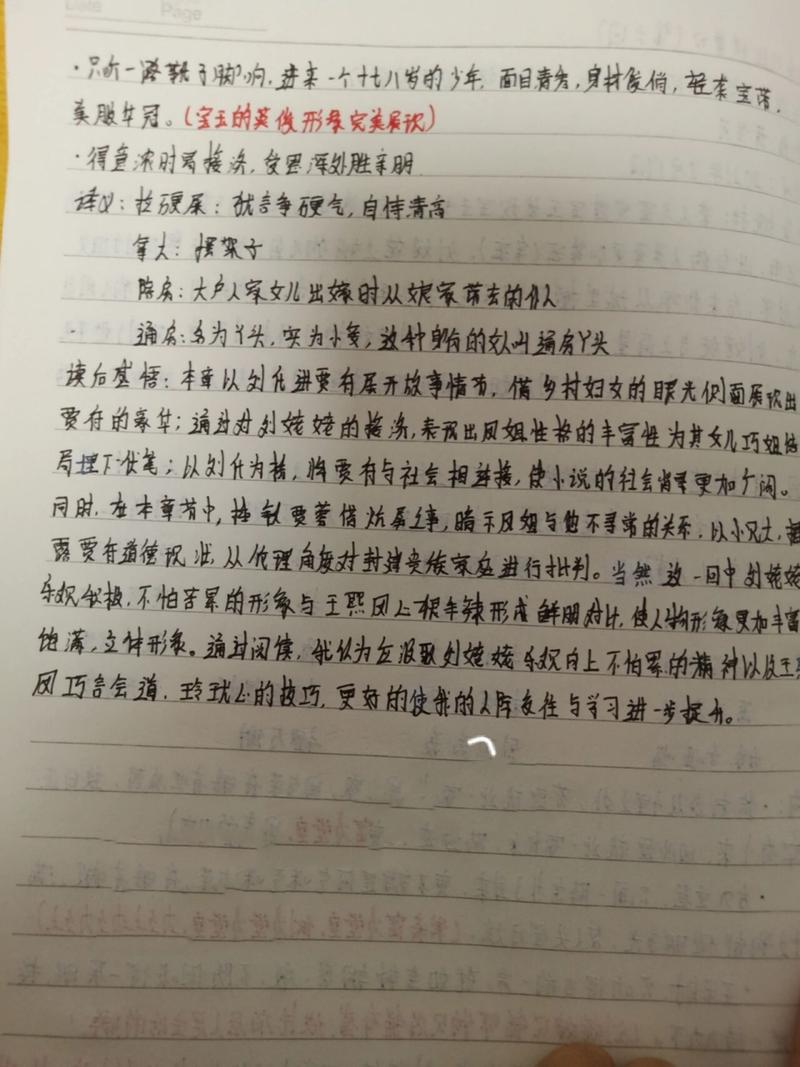 Date
Page
·只听一路靴子脚响,进来一个十七八岁的少年,面目清秀,身材俊俏,轻裘宝带,
美服华冠。(宝玉的英俊形象完美展现)
·得意浓时易接济,受恩深处胜亲朋
译义:拉硬屎:犹言争硬气,自恃清高
拿大:摆架子
陪房:大户人家女儿出嫁时从娘家带去的仆人
通房:名为丫头,实为小妾,这种身份的女叫通房丫头
读后感悟:本章以刘代进贾府展开故事情节,借乡村妇女的眼光侧面展现出
贾府的豪华;通过对刘姥姥的接济,表现出凤姐性格的丰富性为其女儿巧姐结
局埋下伏笔;以刘代为桥,将贾府与社会相连接,使小说的社会背景更加广阔。
同时,在本章节中,描叙贾蓉借炕屏一事,暗示凤姐与他不寻常的关系,以小见大,揭
露贾府道德现状,从伦理角度对封建贵族家庭进行批判。当然这一回中刘姥姥
乐观积极,不怕苦累的形象与王熙凤上根丰辣形成鲜明对比,使人物形象更加丰富
饱满,立体形象。通过阅读,我认为应汲取刘姥姥乐观向上不怕累的精神以及王熙
凤巧言会道,玲珑心的技巧,更好的使我的人际交往与学习进一步提升。